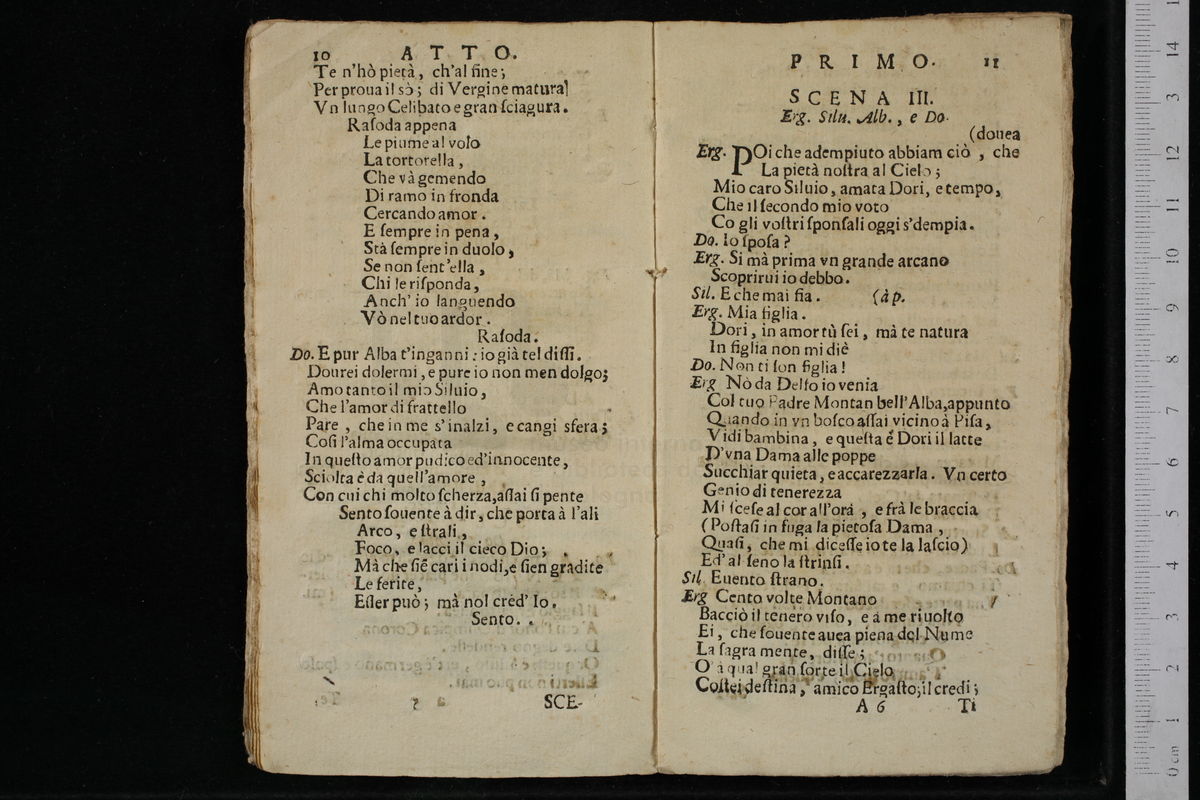 10 ATTO.
Te n'hò pietà, ch'al fine;
Per proua il sò; di Vergine matura!
Vn lungo Celibato e gran ſciagura.
Raſoda appena
Le piume al volo
La tortorella,
Che và gemendo
Di ramo in fronda
Cercando amor.
E ſempre in pena,
Stà ſempre in duolo,
Se non ſent'ella,
Chi le riſponda,
Anch' io languendo
Vò nel tuo ardor.
Raſoda.
Do. E pur Alba t'inganni: io già tel diſſi.
Dourei dolermi, e pure io non men dolgo;
Amo tanto il mio Siluio,
Che l'amor di frattello
Pare, che in me s'inalzi, e cangi sfera;
Coſi l'alma occupata
In queſto amor pudico ed'innocente,
Sciolta è da quell'amore,
Con cui chi molto ſcherza, aſſai ſi pente
Sento ſouente à dir, che porta à l'ali
Arco, e ſtrali,
Foco, e lacci il cieco Dio;
Mà che ſiē cari i nodi, e ſien gradite
Le ferite,
Eſſer può; mà nol cred' Io.
Sento.
SCE-
PRIMO. 11
SCENA III.
Erg. Silu. Alb., e Do.
(douea
Erg. POi che adempiuto abbiam ciò, che
La pietà noſtra al Cielo;
Mio caro Siluio, amata Dori, e tempo,
Che il ſecondo mio voto
Co gli voſtri ſponſali oggi s'dempia.
Do. Io ſpoſa?
Erg. Si mà prima vn grande arcano
Scoprirui io debbo.
Sil. E che mai ſia. (à p.
Erg. Mia figlia.
Dori, in amor tù ſei, mà te natura
In figlia non mi diè
Do. Non ti ſon figlia!
Erg Nò da Delfo io venia
Col tuo Padre Montan bell'Alba, appunto
Quando in vn boſco aſſai vicino à Piſa,
Vidi bambina, e queſta é Dori il latte
D'vna Dama alle poppe
Succhiar quieta, e accarezzarla. Vn certo
Genio di tenerezza
Mi ſceſe al cor all'ora, e frà le braccia
(Poſtaſi in fuga la pietoſa Dama,
Quaſi, che mi diceſſe io te la laſcio)
Ed' al ſeno la ſtrinſi.
Sil Euento ſtrano.
Erg Cento volte Montano
Bacciò il tenero viſo, e à me riuolto
Ei, che ſouente auea piena del Nume
La ſagra mente, diſſe;
O à qual gran ſorte il Cielo
Coſtei deſtina, amico Ergaſto; il credi;
A 6 Ti